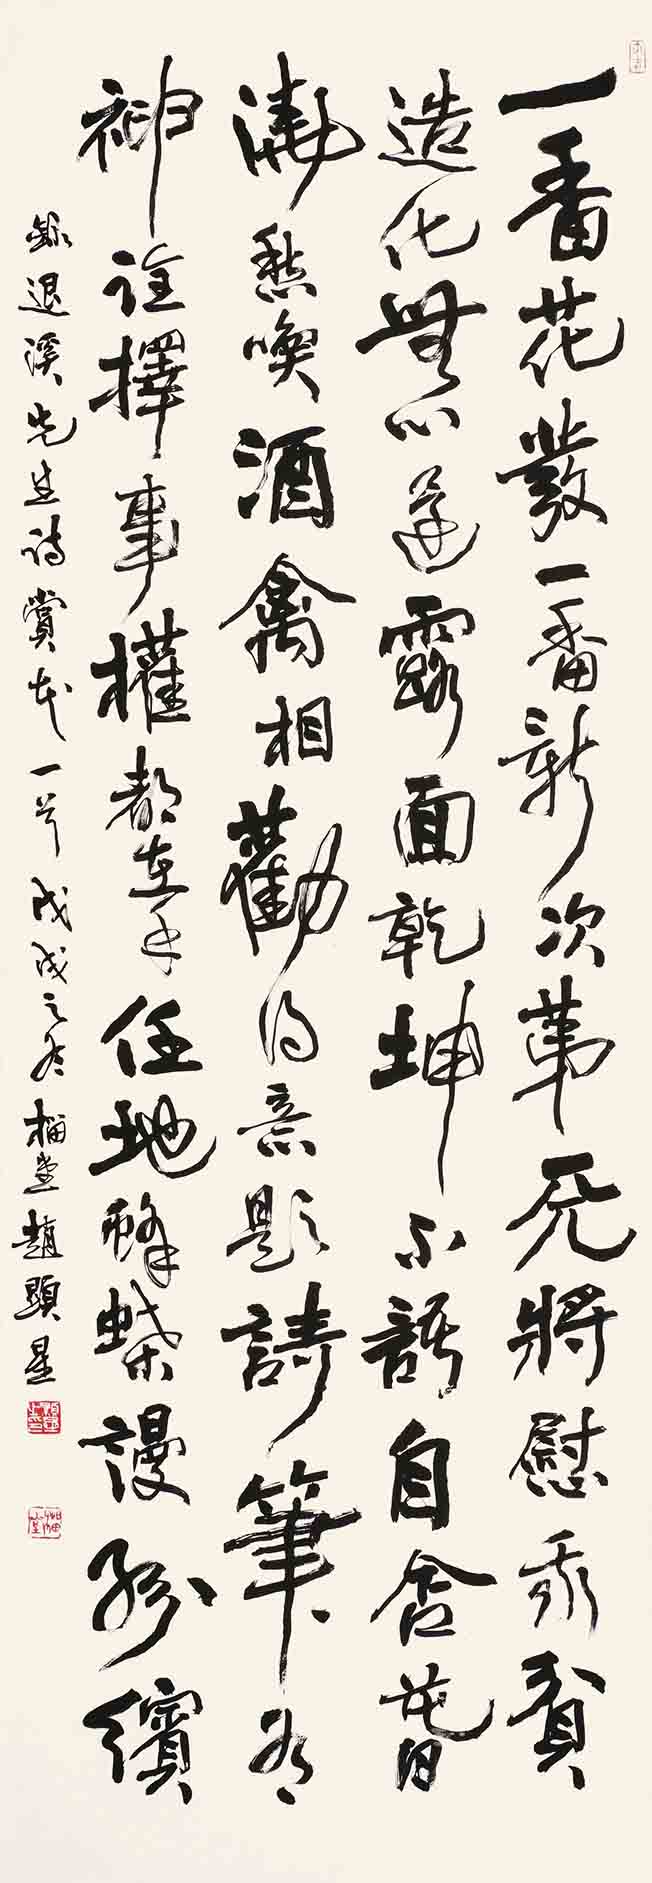 一番花發一番新次第天將慰我貧
造化無心還露面乾坤不語自含春
澆愁喚酒禽相勸得意題詩筆有
神詮擇事權都在手任地蜂蝶謾紛繽
錄退溪先生詩賞花一首 戊戌之冬 榴堂 趙顯星